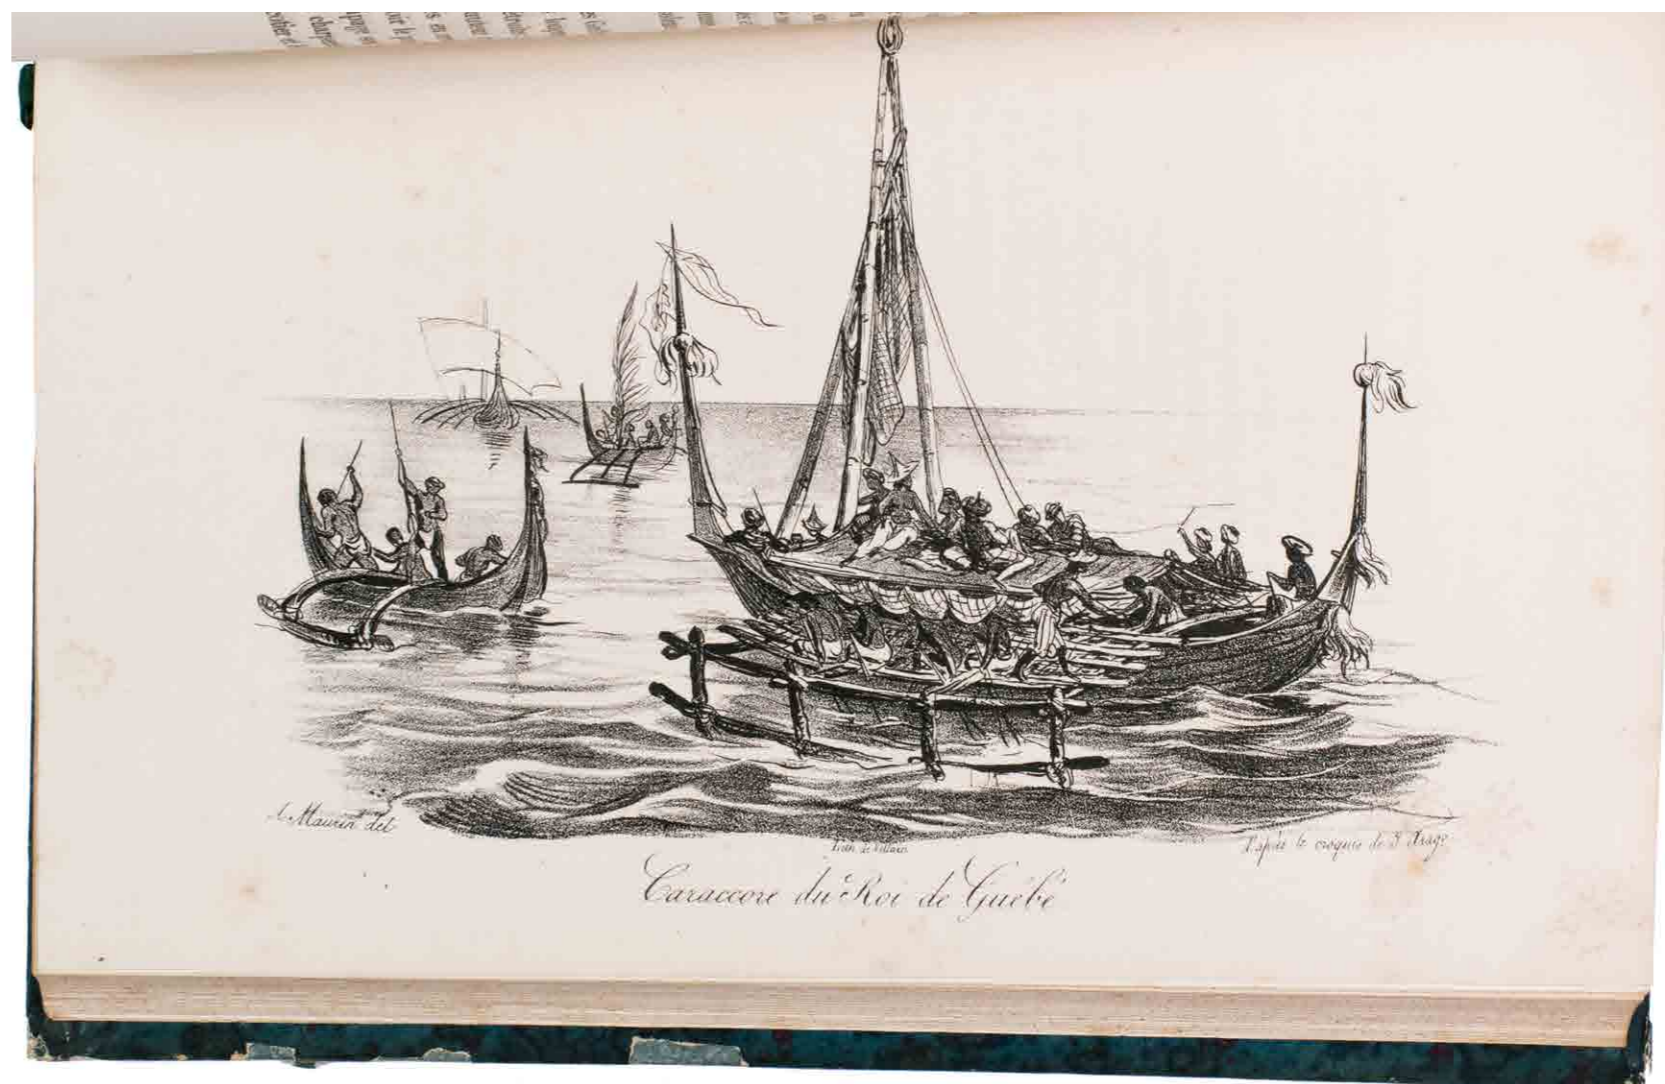 A. Maurin del
Lith. de Villain
D'après le croquis de J. Arago
Caraccore du Roi de Guébé